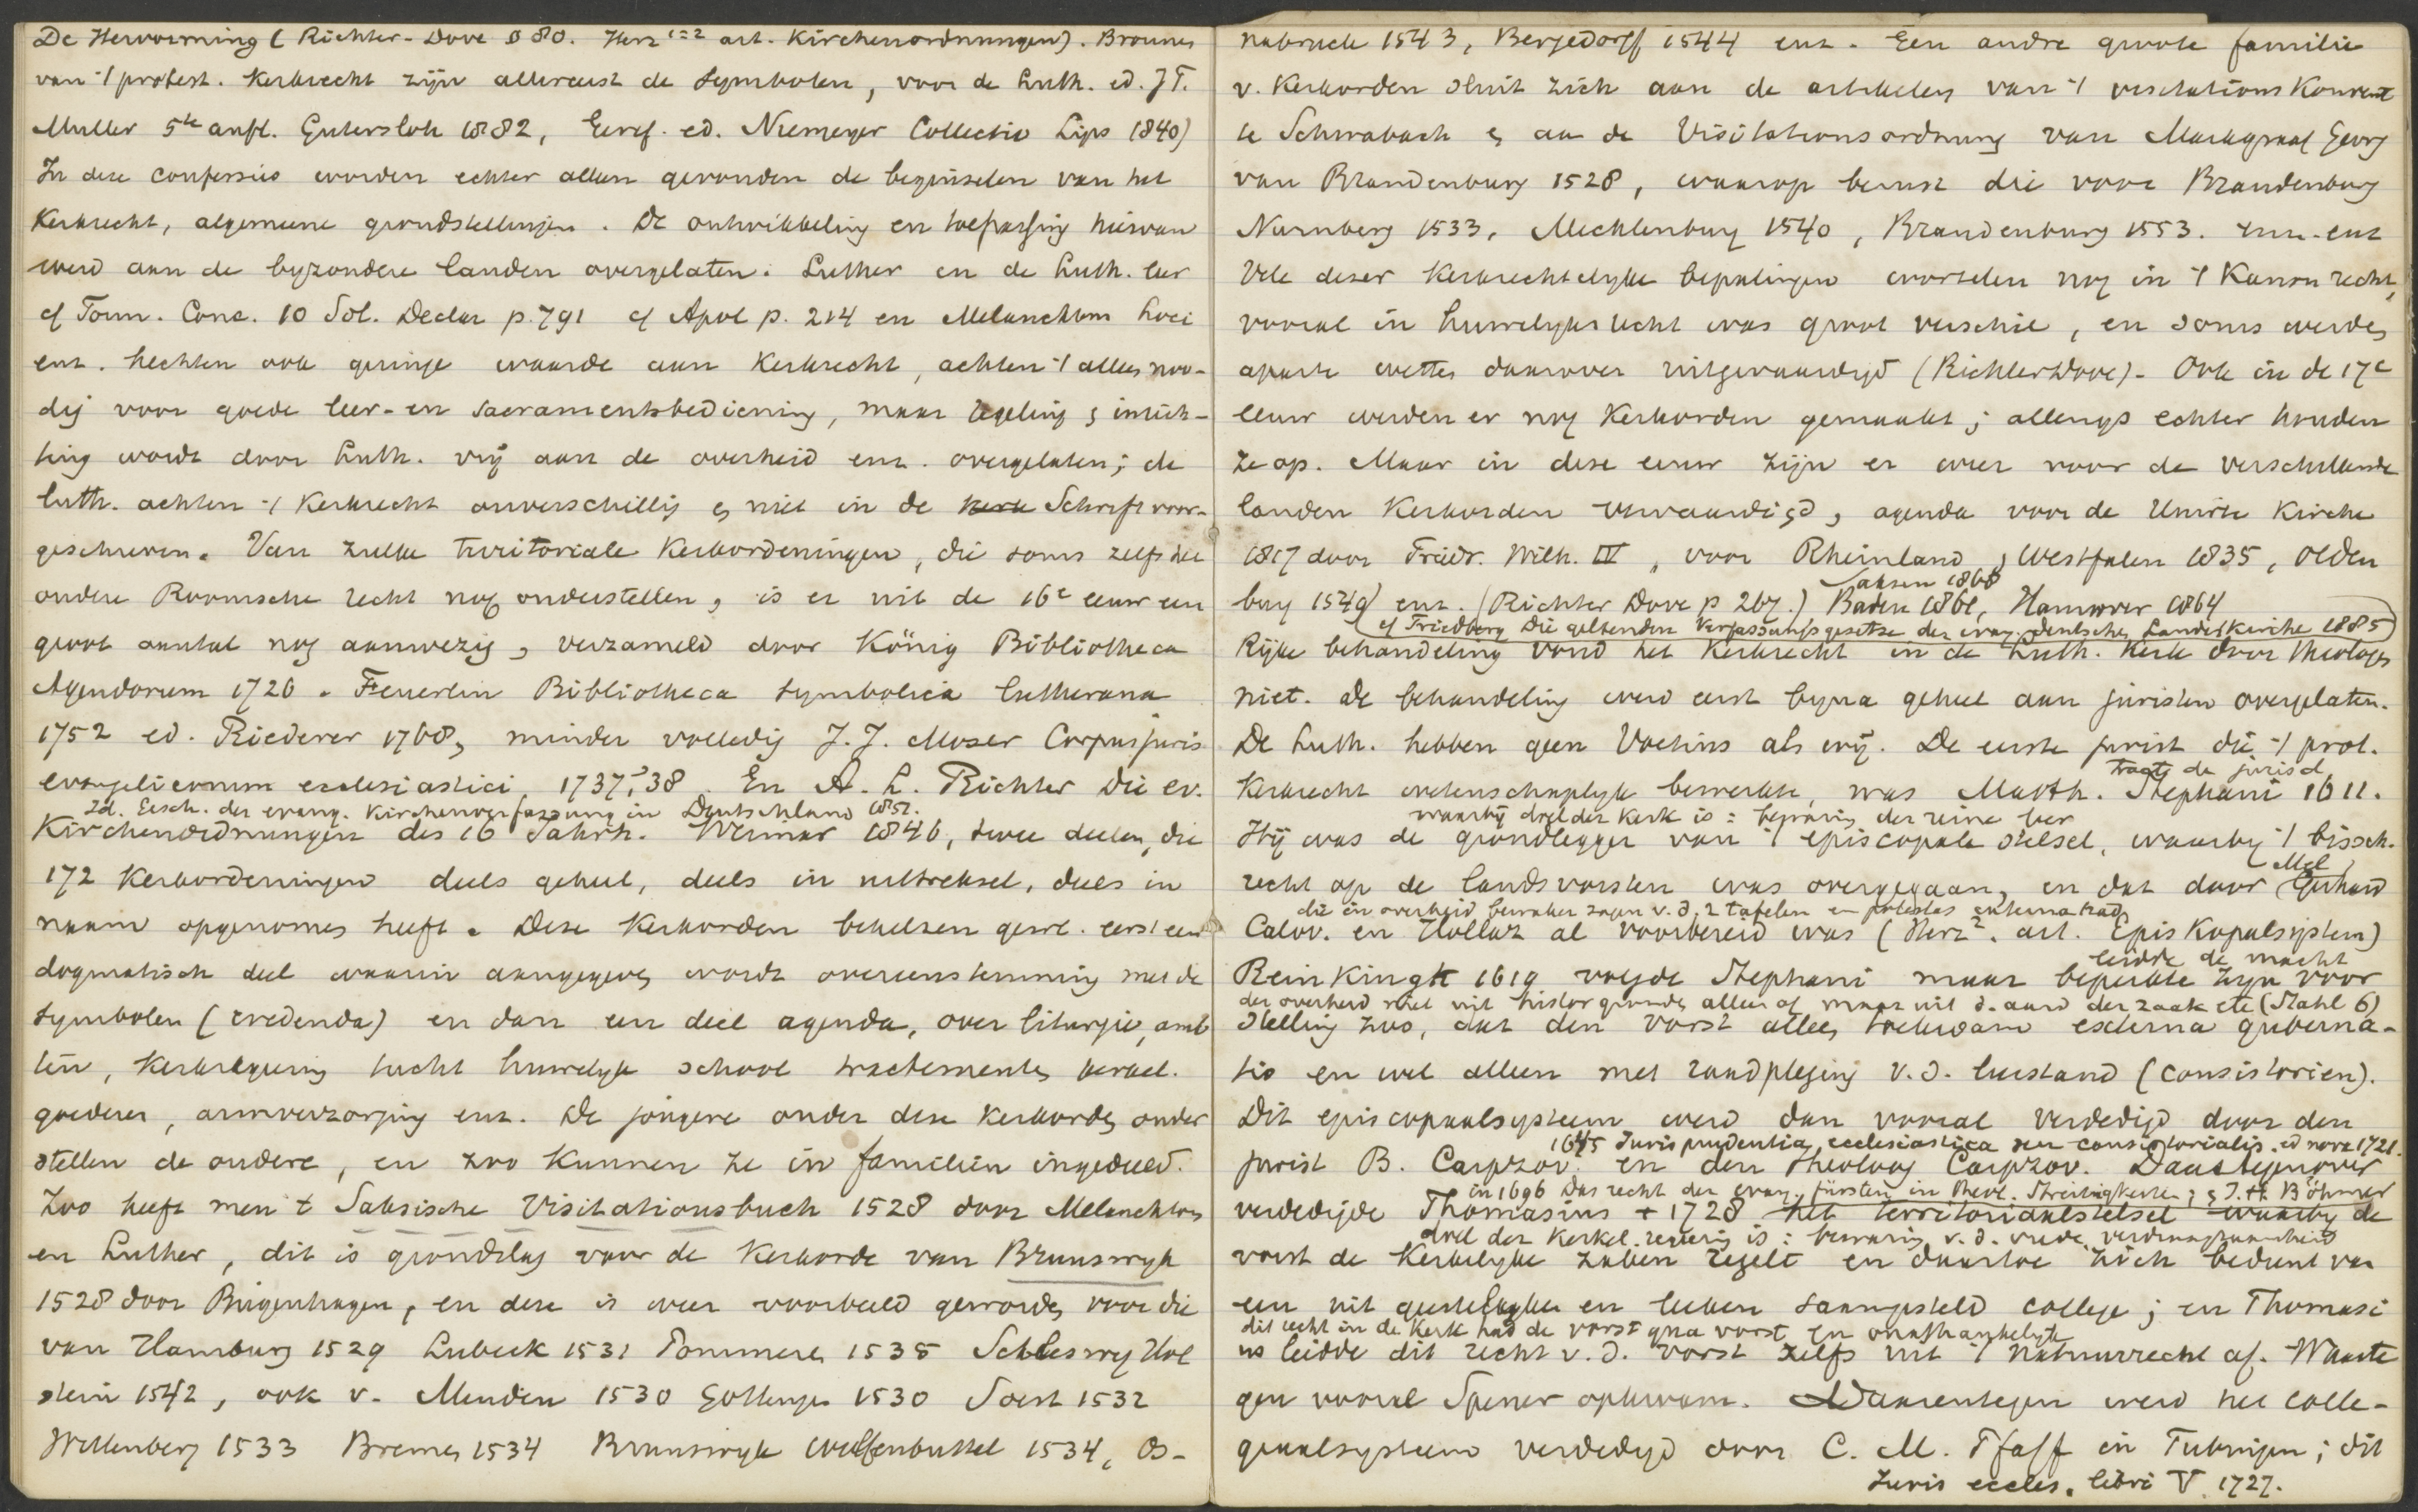 De Hervorming (Richter-Dove § 80. Herz 1=2 art. Kirchenordnungen). Bronnen
van 't protest. Kerkrecht zijn allereerst de Symbolen, voor de Luth. ed. J T.
Muller 5te aufl. Gutersloh 1882, Geref. ed. Niemeyer Collectio Lips 1840)
In deze confessies worden echter alleen gevonden de beginselen van het
Kerkrecht, algemeene grondstellingen. De ontwikkeling en toepassing hiervan
werd aan de byzondere landen overgelaten. Luther en de Luth. leer
cf Form. Conc. 10 Sol. Declar p. 791 cf Apol p. 214 en Melanchtons Loci
enz. hechten ook geringe waarde aan Kerkrecht, achten 't alles noo-
dig voor goede leer- en sacramentsbediening, maar regeling & inrich-
ting wordt door Luth. vrij aan de overheid enz. overgelaten; de
luth. achten 't Kerkrecht onverschillig & niet in de Kerk Schrift voor-
geschreven. Van zulke territoriale Kerkordeningen, die soms zelfs het
oudere Roomsche recht nog onderstellen, is er uit de 16e eeuw een
groot aantal nog aanwezig, verzameld door König Bibliotheca
Agendorum 1726. Feuerlin Bibliotheca symbolica lutherana
1752 ed. Riederer 1768, minder volledig J. J. Moser Corpus juris
evangelicorum ecclesiastici 1737,'38. En A. L. Richter Die ev.
Id. Gesch. der evang. Kirchenverfassung in Deutschland 1851.
Kirchenordnungen des 16 Jahrh. Weimar 1846, twee deelen, die
172 Kerkordeningen deels geheel, deels in uittreksel, deels in
naam opgenomen heeft. Deze Kerkorden behelzen gew. eerst een
dogmatisch deel waarin aangegeven wordt overeenstemming met de
symbolen (credenda) en dan een deel agenda, over liturgie, amb
ten, Kerkregeering tucht huwelyk school tractementen kerkel.
goederen, armverzorging enz. De jongere onder deze Kerkorden onder
stellen de oudere, en zoo kunnen ze in familiën ingedeeld.
Zoo heeft men 't Saksische Visitationsbuch 1528 door Melanchton
en Luther, dit is grondslag voor de Kerkorde van Brunswyk
1528 door Bugenhagen, en deze is weer voorbeeld geworden voor die
van Hamburg 1529 Lubeck 1531 Pommeren 1535 Schleswig Hol
stein 1542, ook v. Minden 1530 Gottingen 1530 Soest 1532
Wittenberg 1533 Bremen 1534 Brunswyk Wolfenbuttel 1534, Os-
nabruck 1543, Bergedorff 1544 enz. Een andre groote familie
v. Kerkorden sluit zich aan de artikelen van 't visitations Konvent
te Schwabach & aan de Visitationsordnung van Markgraaf Georg
van Brandenburg 1528, waarop berust die voor Brandenburg
Nurnberg 1533, Mecklenburg 1540, Brandenburg 1553. enz.
Vele dezer Kerkrechtelyke bepalingen wortelen nog in 't Kanon recht,
vooral in huwelyksrecht was groot verschil, en soms werden
aparte wetten daarover uitgevaardigd (Richter Dove). Ook in de 17e
eeuw werden er nog Kerkorden gemaakt; allengs echter houden
ze op. Maar in deze eeuw zijn er weer voor de verschillende
landen Kerkorden vervaardigd, agenda voor de Unirte Kirche
1817 door Friedr. Wilh. III, voor Rheinland & Westfalen 1835, Olden
Saksen 1868
burg 1549 enz. (Richter Dove p 267.) Baden 1861, Hannover 1864
cf Friedberg Die geltenden Verfassungsgesetze der evang. deutschen Landeskirche 1885)
Rijke behandeling vond het Kerkrecht in de Luth. Kerk door theologen
niet. De behandeling werd eerst byna geheel aan juristen overgelaten.
De Luth. hebben geen Voetius als wij. De eerste jurist die 't prot.
Tract. de jurisd.
Kerkrecht wetenschaplyk bewerkte, was Matth. Stephani 1611.
waarbij doel der Kerk is: bewaring der reine leer
Hij was de grondlegger van 't episcopale stelsel, waarby 't bissch.
Mel
recht op de landsvorsten was overgegaan, en dat door Gerhard
die in overheid bewaker zagen v. d. 2 tafelen en potestas externa had
Calov. en Hollaz al voorbereid was (Herz 2. art. Episkopalsystem)
leidde de macht
Reinkingk 1619 volgde Stephani maar beperkte zyn voor
der overheid niet uit histor gronden alleen af maar uit d. aard der zaak etc (Stahl 6)
stelling zoo, dat den vorst alleen toekwam externa guberna-
tio en wel alleen met raadpleging v. d. leerstand (consistorien).
Dit episcopaalsysteem werd dan vooral verdedigd door den
1645 Jurisprudentia ecclesiastica seu consistorialis. ed nova 1721.
jurist B. Carpzov. en den theoloog Carpzov. Daartegenover
in 1696 Das recht der evang. fürsten in theol. Streitigkeiten; & J. H. Böhmer
verdedigde Thomasius + 1728 het territoriaalstelsel waarby de
doel der Kerkel. regering is: bewaring v. d. vrede, verdraagzaamheid
vorst de Kerkelyke zaken regelt en daartoe zich bedient van
een uit geestelyken en leeken saamgesteld college; en Thomasi
dit recht in de Kerk had de vorst qua vorst en onafhankelyk
us leidde dit recht v. d. vorst zelfs uit 't natuurrecht af. Waarte
gen vooral Spener opkwam. Daarentegen werd het colle-
giaalsysteem verdedigd door C. M. Pfaff in Tubingen; dit
Juris eccles. libri V. 1727.